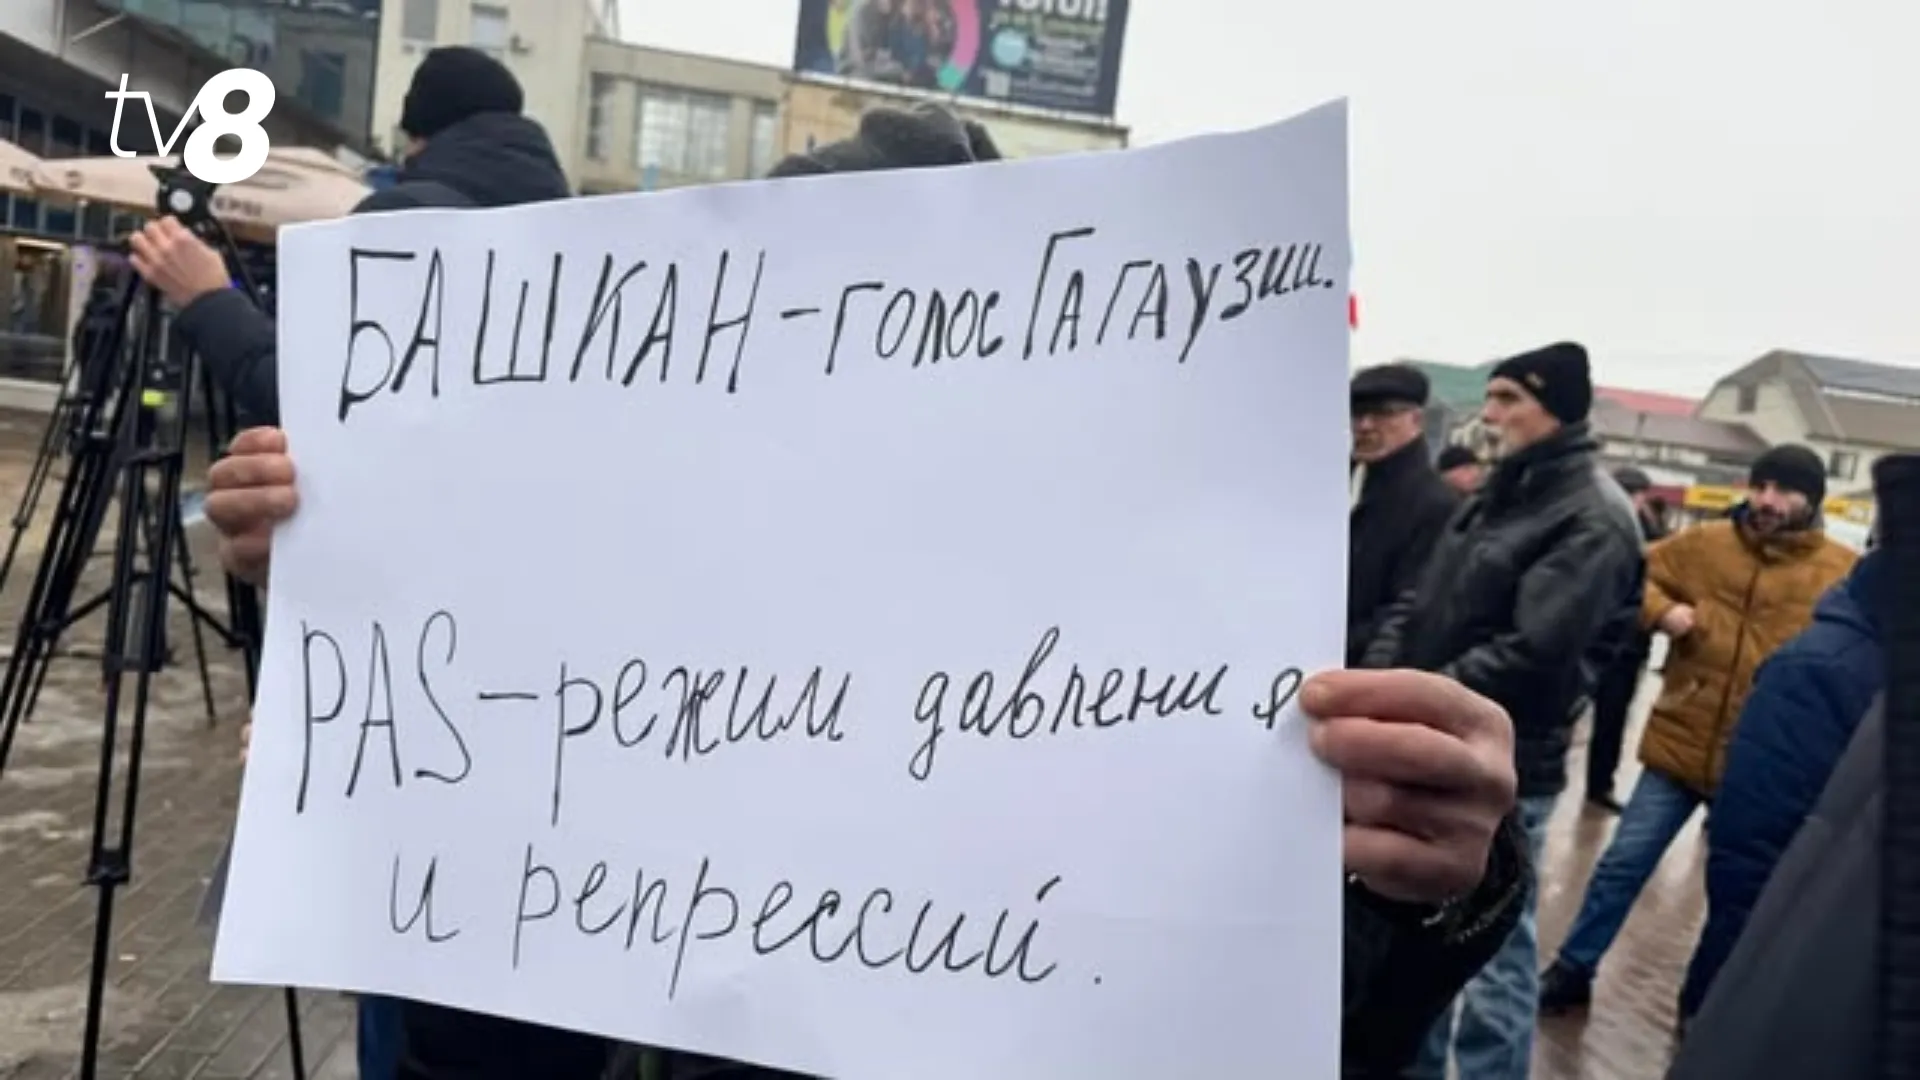 tv8
БАШКАН - голос ГАГАУзии.
PAS - режим давления
и репрессий.